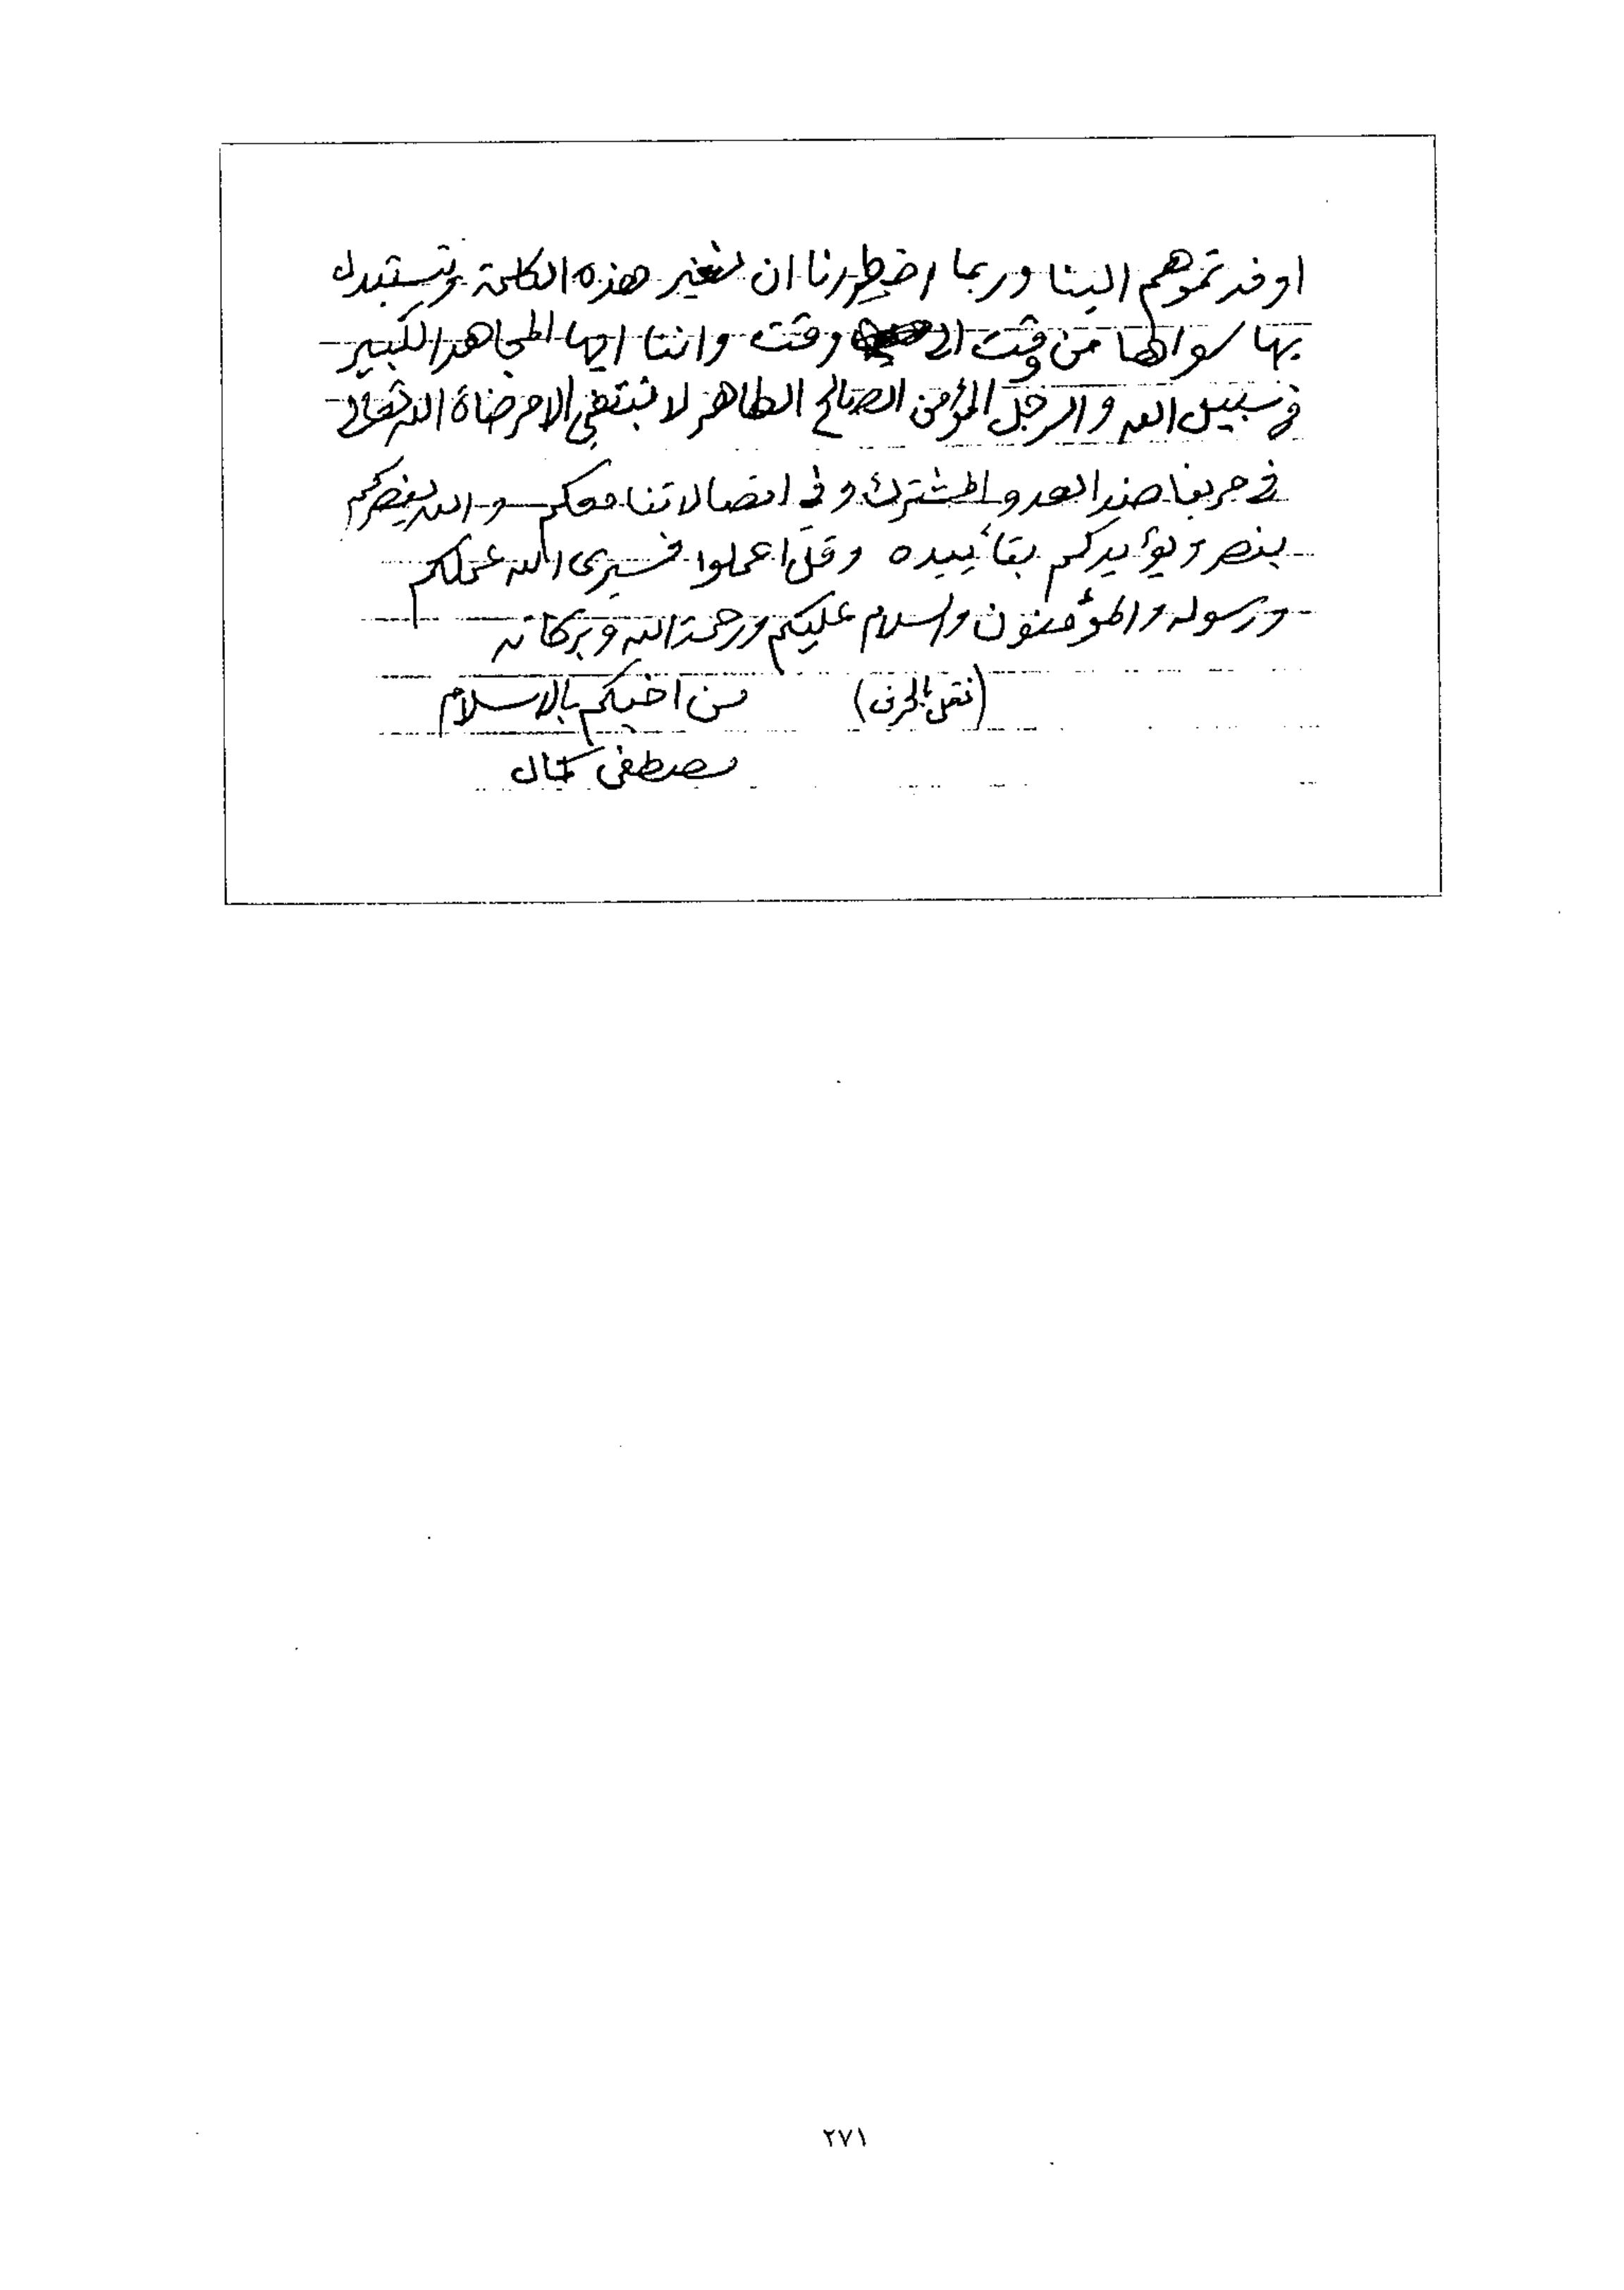 اوفدتموهم الينا وربما اضطررنا ان نغير هذه الكلمة ونستبدل
بها سواها من وقت الى وقت واننا ايها المجاهد الكبير
في سبيل الله والرجل المؤمن الصالح الطاهر لا نبتغي الا مرضاة الله تعالى
في حربنا ضد العدو المشترك وفي اتصالاتنا معكم والله ينصركم
بنصر ويؤيدكم بتأييده وقل اعملوا فسيرى الله عملكم
ورسوله والمؤمنون والسلام عليكم ورحمة الله وبركاته
(نقل بالحرف) من اخيكم بالاسلام
مصطفى كمال
٢٧١